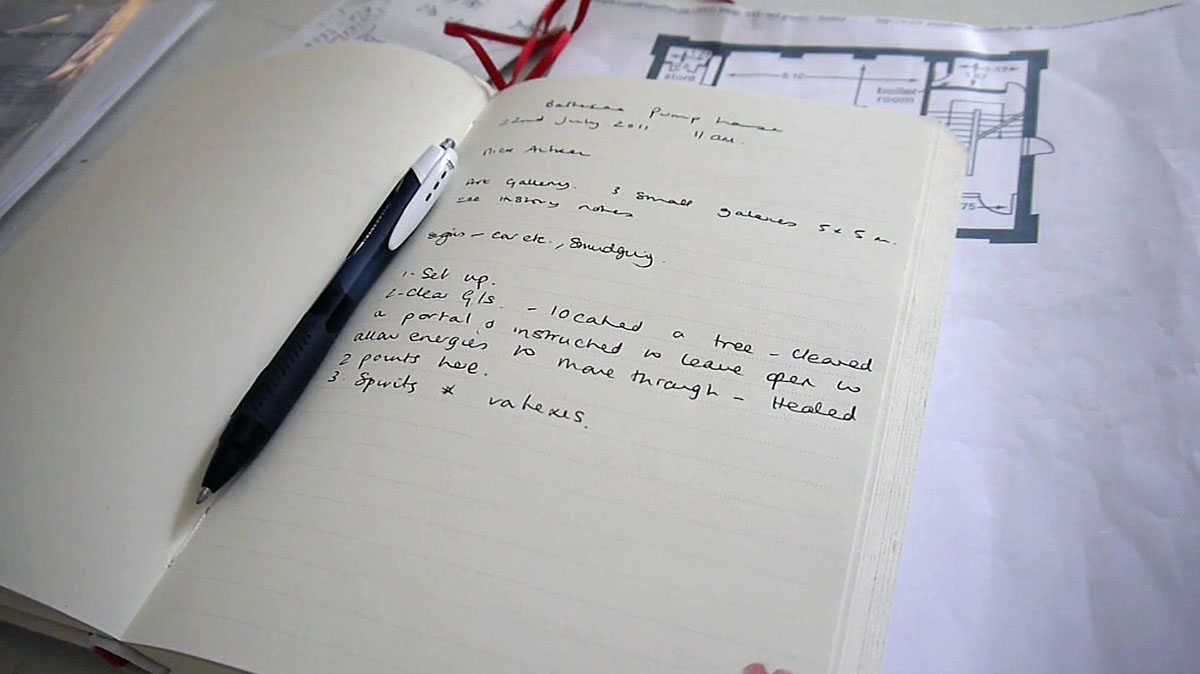 Battersea Pump house
22nd July 2011 11 am.
Nick
Art Gallery. 3 small galleries 5 x 5 m.
see history notes
- car etc., smudging.
1. Set up.
2. clear G/S. - located a tree - cleared
a portal & instructed to leave open to
allow energies to move through - Healed
2 points here.
3. Spirits * vortexes.
store
5.10
boiler
room
75